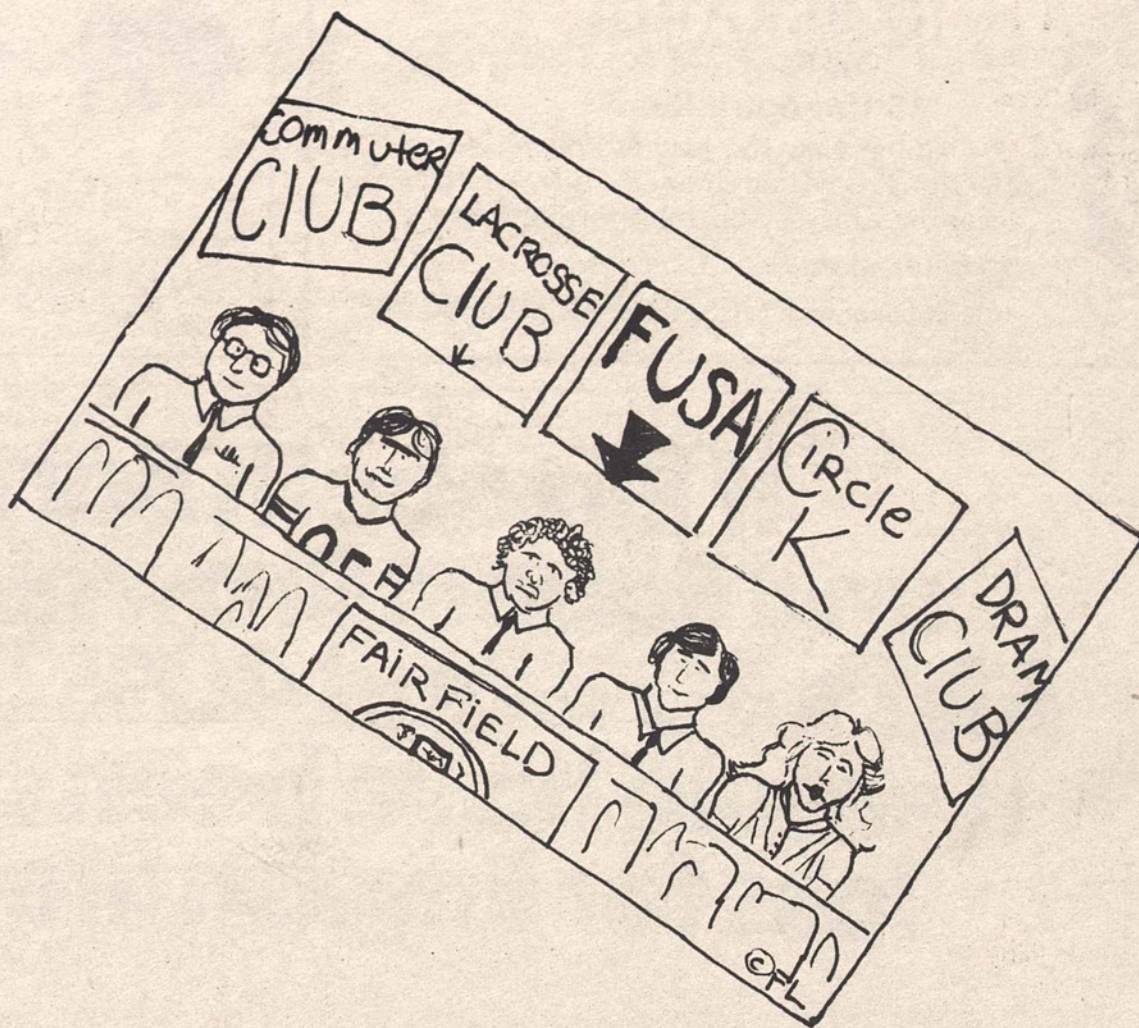 Commuter
ClUB
LACROSSE
ClUB
FUSA
CiRcle
K
DRAM
ClUB
FAiRFiELD
©FL